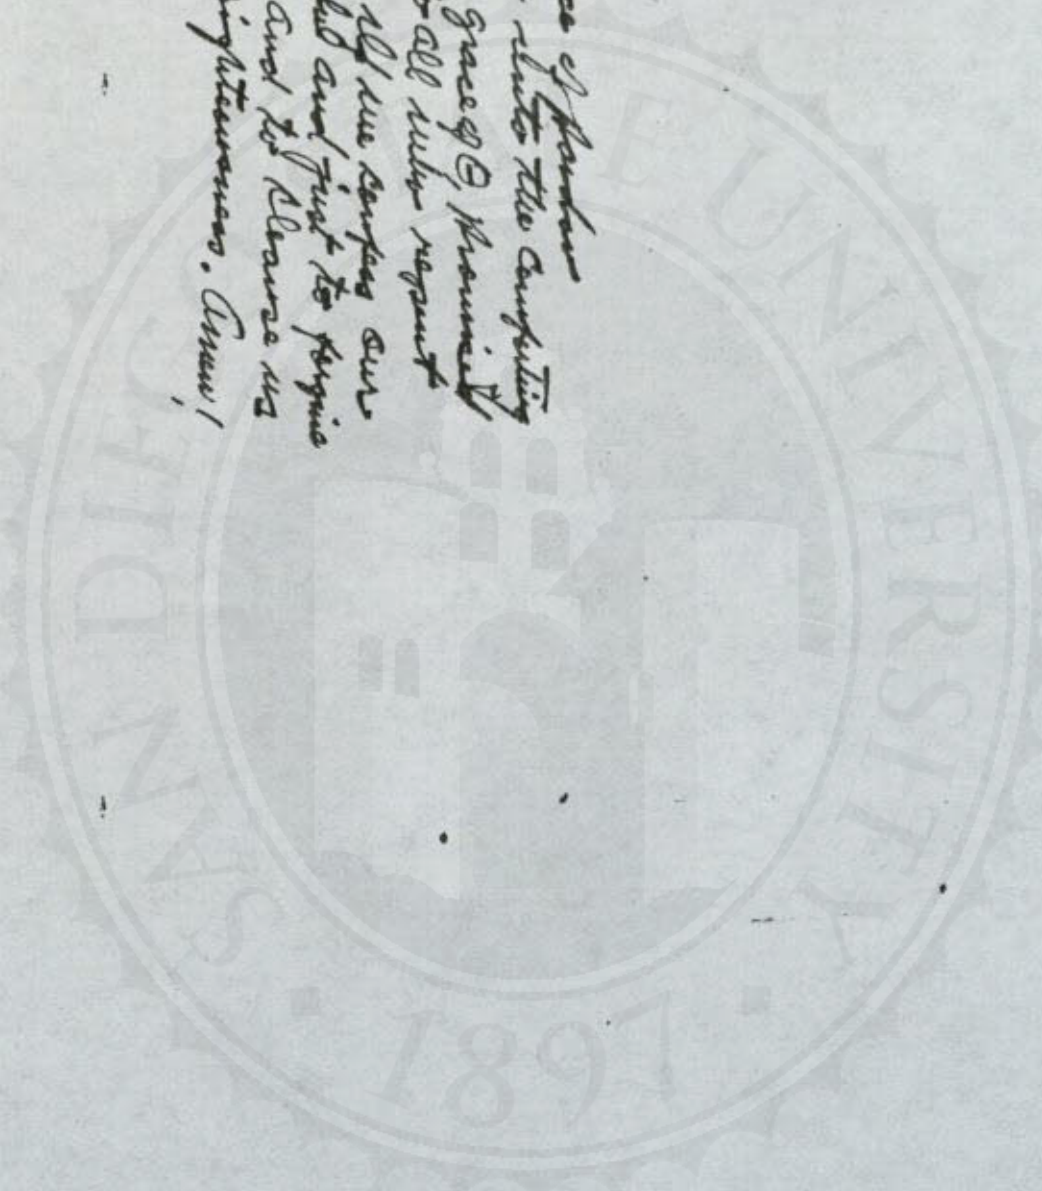 of Pardon
unto the Comforting
grace of Θ, promised
all who repent
If we confess our
and just to forgive
and to cleanse us
Amen!
SAN DIEGO STATE UNIVERSITY
1897